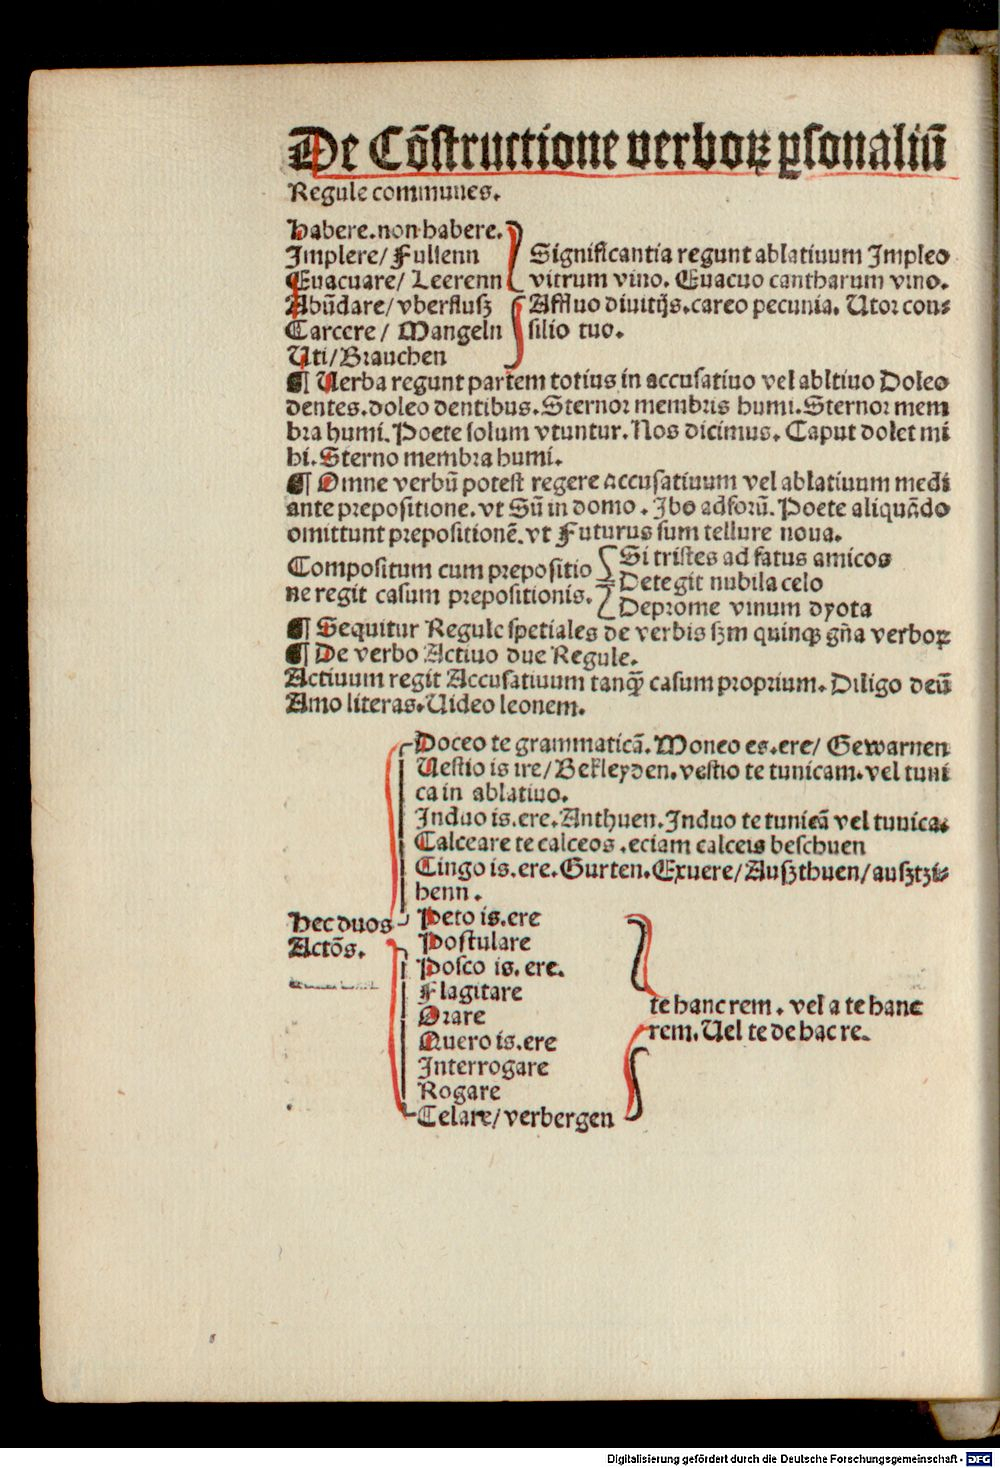 De Cõstructione verboꝝ ꝑsonaliũ
Regule communes.
Habere.non habere.
Implere/ Fullenn
Euacuare/ Leerenn
Abũdare/ vberflusz
Carcere/ Mangeln
Uti/Brauchen
Significantia regunt ablatiuum Impleo
vitrum vino. Euacuo cantharum vino.
Affluo diuitijs.careo pecunia. Utor con-
silio tuo.
¶ Uerba regunt partem totius in accusatiuo vel abltiuo Doleo
dentes.doleo dentibus.Sternor membris humi.Sternor mem
bra humi.Poete solum vtuntur.Nos dicimus. Caput dolet mi
hi.Sterno membra humi.
¶ Omne verbũ potest regere accusatiuum vel ablatiuum medi
ante prepositione.vt Sũ in domo . Ibo ad forũ. Poete aliquãdo
omittunt prepositionẽ.vt Futurus sum tellure noua.
Compositum cum prepositio
ne regit casum prepositionis.
Si tristes ad fatus amicos
Detegit nubila celo
Deprome vinum dyota
¶ Sequitur Regule spetiales de verbis szm quinqꝫ gña verboꝝ
¶ De verbo Actiuo due Regule.
Actiuum regit Accusatiuum tanqꝫ̃ casum proprium. Diligo deũ
Amo literas.Uideo leonem.
Hec duos
Actõs.
Doceo te grammaticã.Moneo es.ere/ Gewarnen
Uestio is ire/ Bekleyden.vestio te tunicam.vel tuni
ca in ablatiuo.
Induo is.ere.Anthuen.Induo te tunicã vel tunica.
Calceare te calceos .eciam calceis beschuen
Cingo is.ere.Gurten.Exuere/Auszthuen/ausztzi-
henn .
Peto is.ere
Postulare
Posco is. ere.
Flagitare
Orare
Quero is.ere
Interrogare
Rogare
Celare/verbergen
te hanc rem . vel a te hanc
rem.Uel te de hac re.
Digitalisierung gefördert durch die Deutsche Forschungsgemeinschaft - DFG